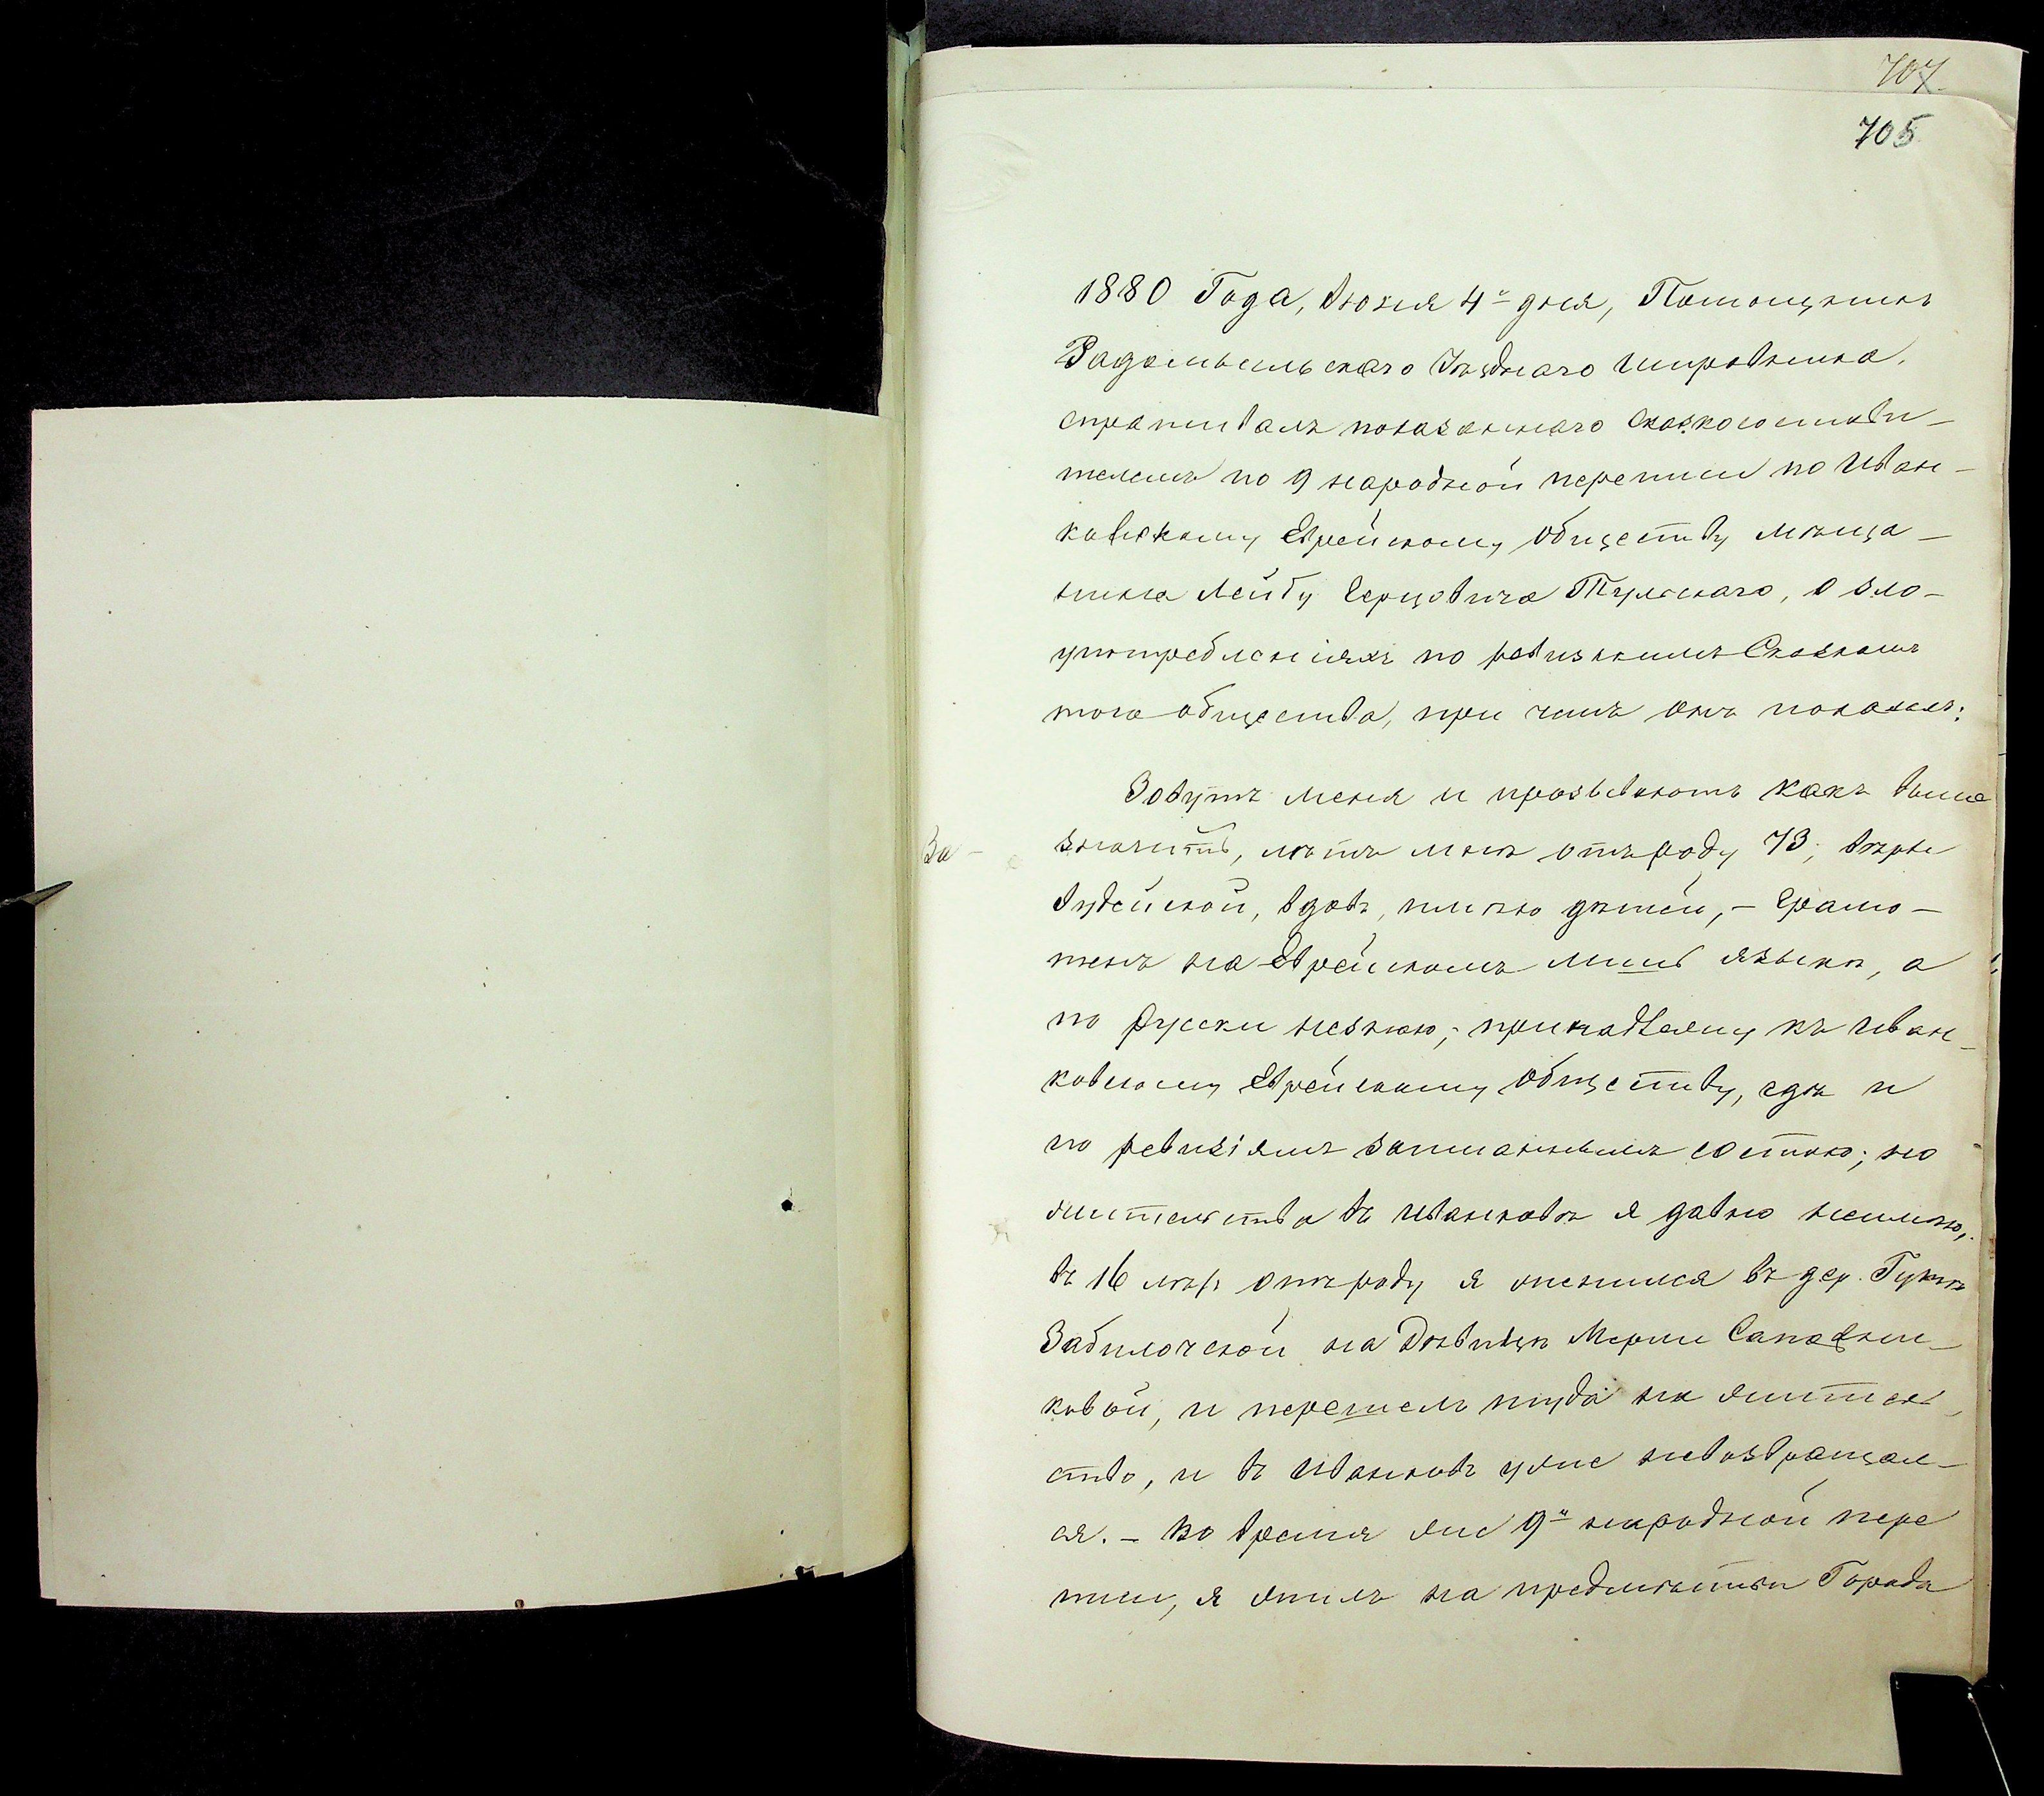 707
705
1880 Года, Іюня 4го дня, Помощникъ
Радомысльскаго Уѣзднаго Исправника,
спрашивалъ показаннаго Сказкосостави-
телемъ по 9 народной переписи по Иван-
ковскому Еврейскому обществу мѣща-
нина Лейбу Герцовича Тульскаго, о зло-
употребленіяхъ по ревизскимъ Сказкамъ
того общества, при чемъ онъ показалъ:
Зовутъ меня и прозываютъ какъ выше
значитъ, лѣтъ мнѣ отъ роду 73, вѣры
Іудейской, вдовъ, имѣю дѣтей, - Грамо-
тенъ на Еврейскомъ лишь языкѣ, а
по русски незнаю; принадлежу къ Иван-
ковскому Еврейскому обществу, гдѣ и
по ревизіямъ записаннымъ состою; но
жительства въ Иванковѣ я давно неимѣю,
въ 16 лѣтъ отъ роду я женился въ дер. Гутѣ
Забилочской на Дѣвицѣ Мерии Сапожни-
ковой, и перешелъ туда на житель-
ство, и въ Иванковъ уже невозвращал-
ся. - Во время же 9й народной пере
писи, я жилъ на предмѣстьи Города
Ра-